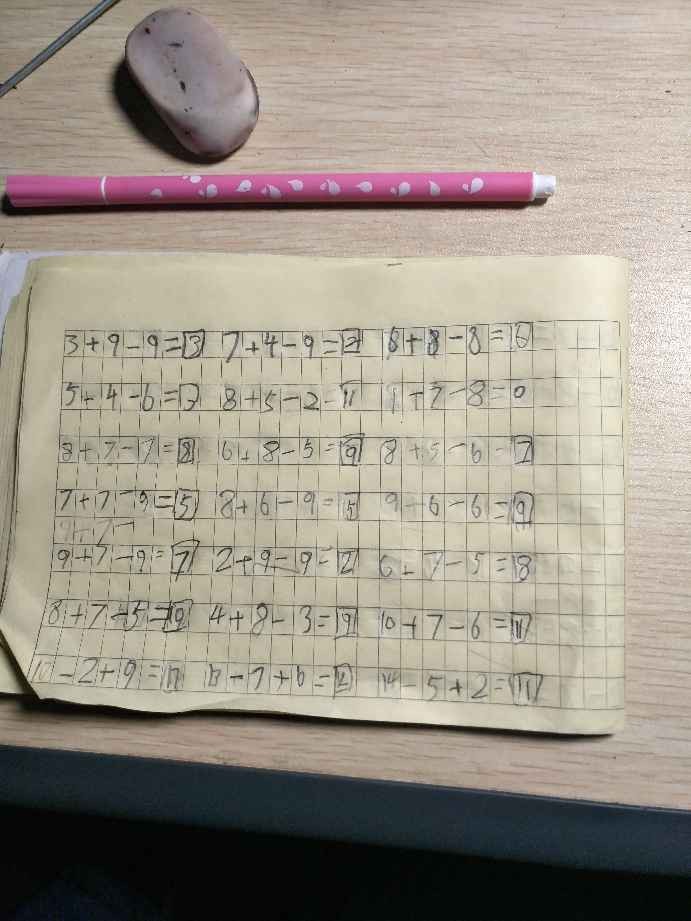 3+9-9=3 7+4-9=2 6+8-8=6
5+4-6=3 8+5-2=11 1+7-8=0
8+7-7=8 6+8-5=9 8+5-6=7
7+7-9=5 8+6-9=5 9+6-6=9
9+7-
9+7-9=7 2+9-9=2 6+7-5=8
8+7-5=10 4+8-3=9 10+7-6=11
10-2+9=17 -7+6= 14-5+2=11